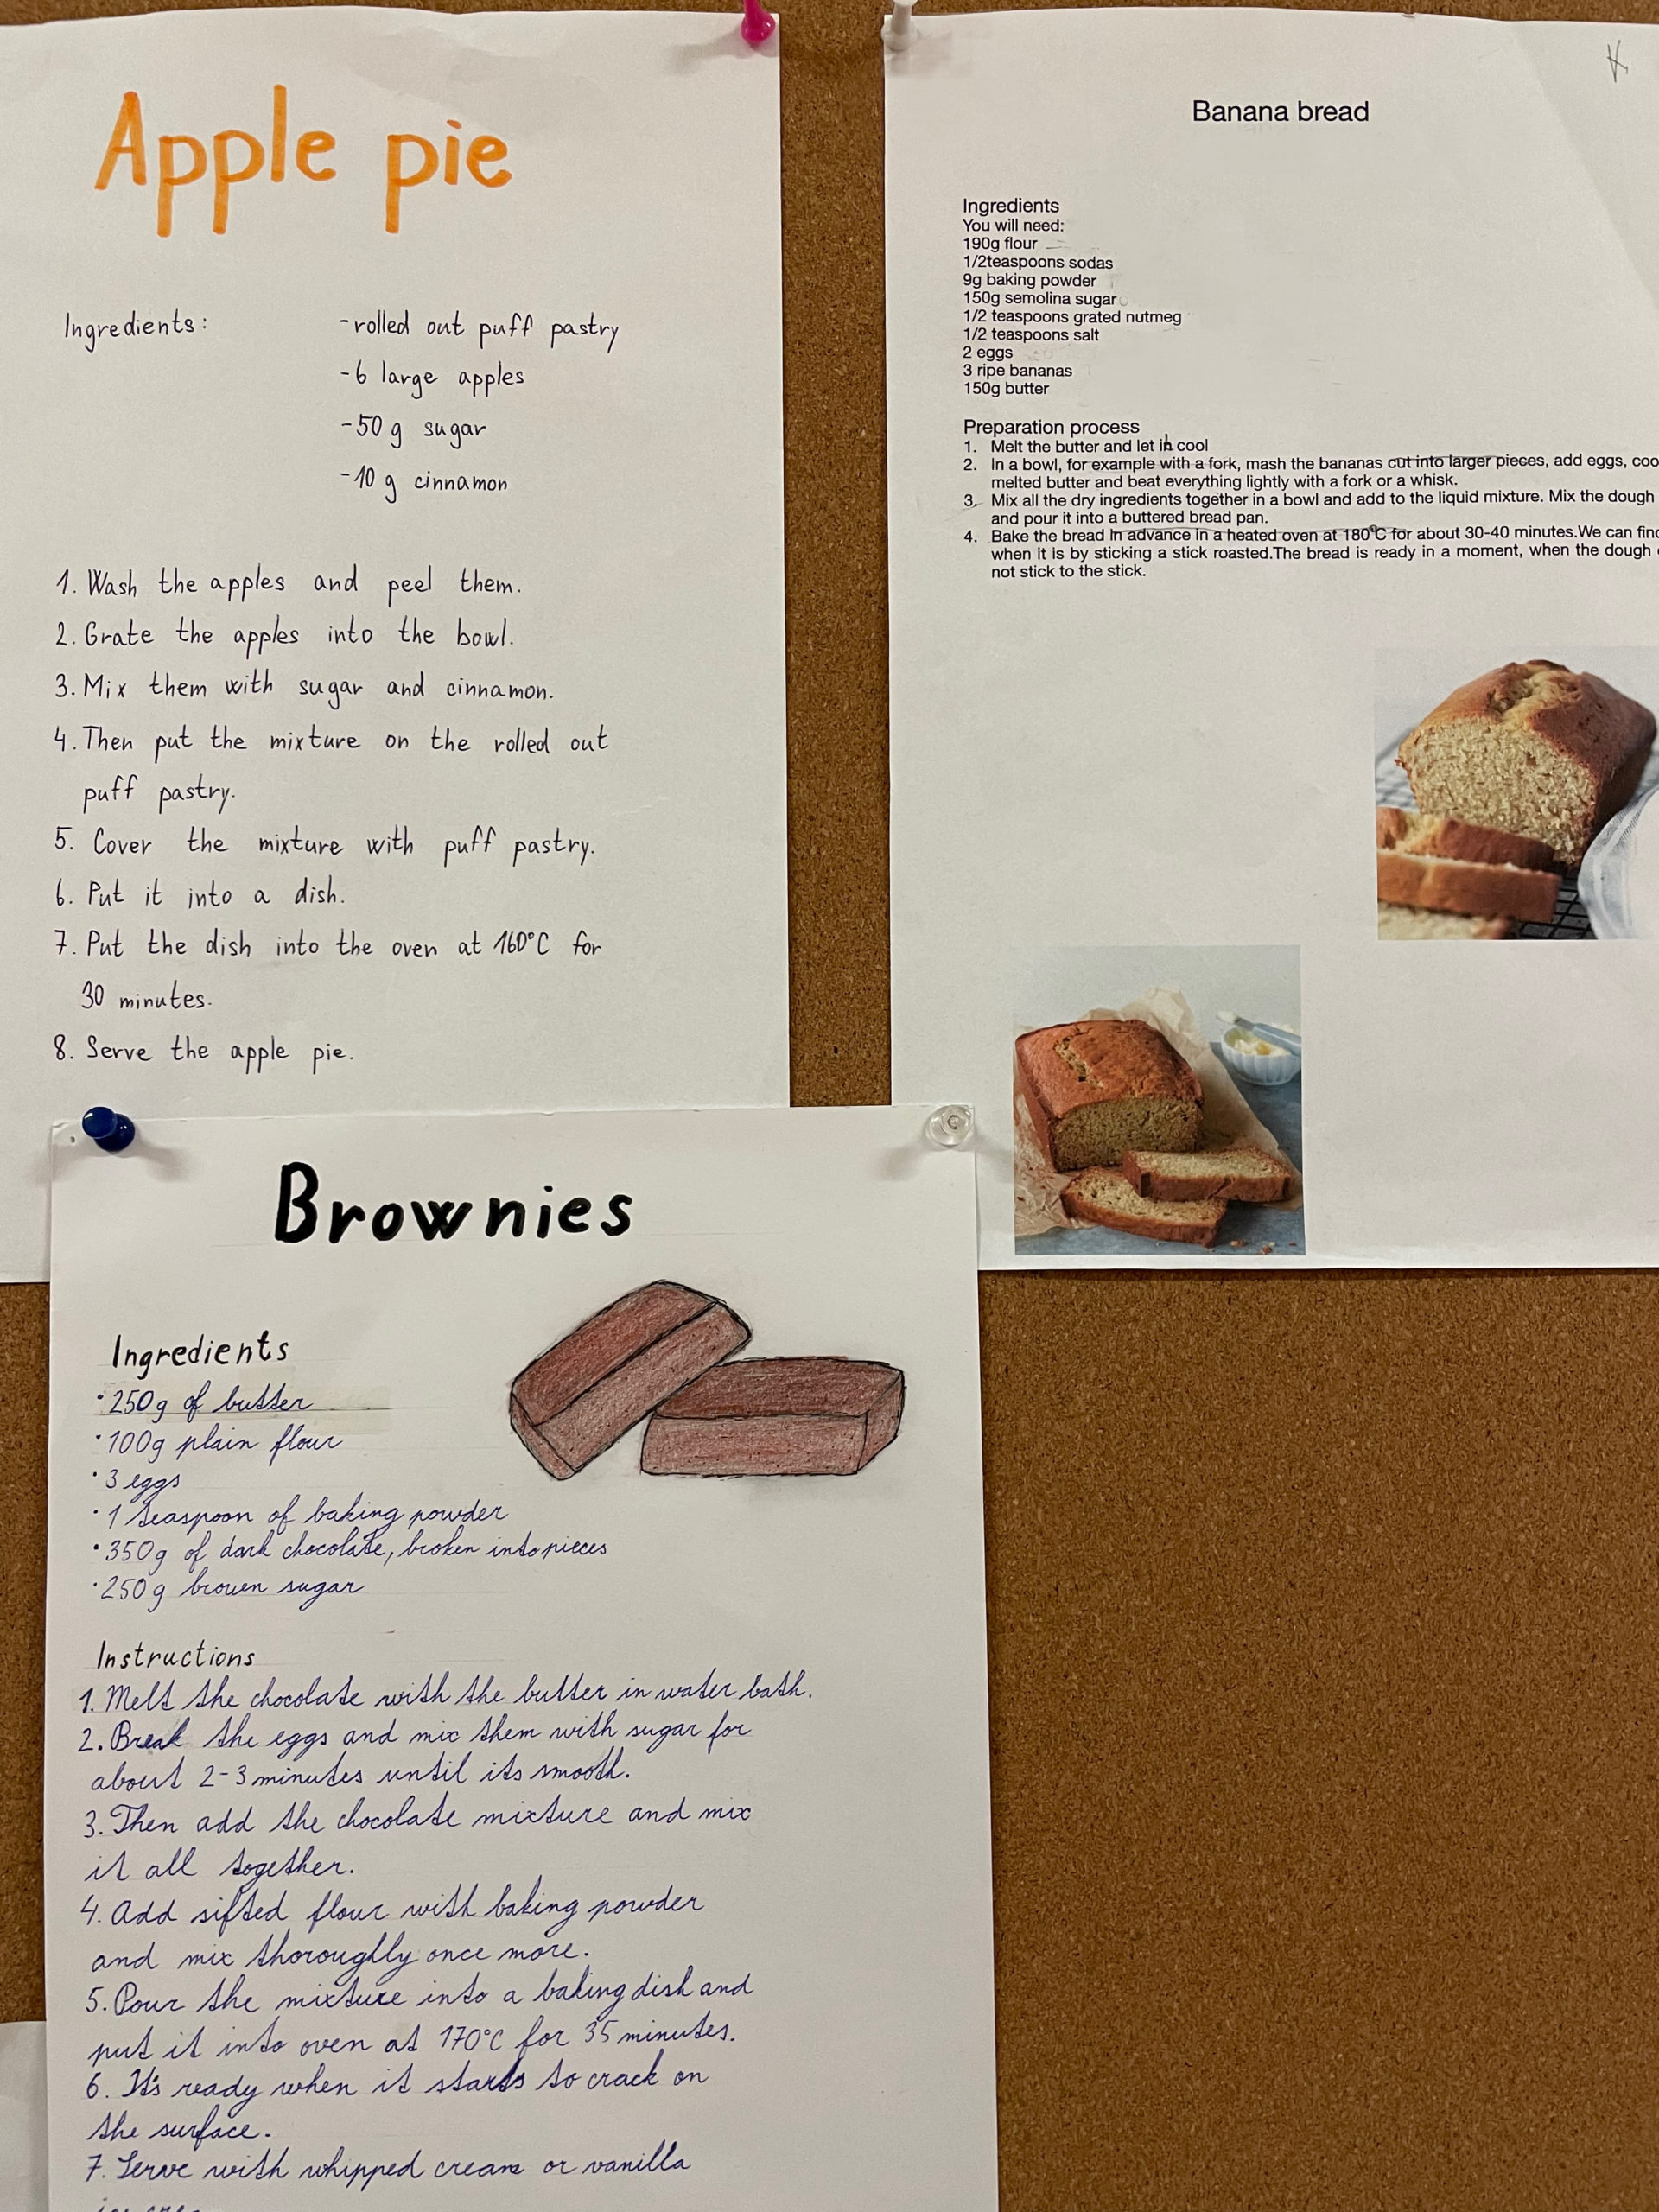 Apple pie
Ingredients:
-rolled out puff pastry
-6 large apples
-50 g sugar
-10 g cinnamon
1. Wash the apples and peel them.
2. Grate the apples into the bowl.
3. Mix them with sugar and cinnamon.
4. Then put the mixture on the rolled out
puff pastry.
5. Cover the mixture with puff pastry.
6. Put it into a dish.
7. Put the dish into the oven at 160°C for
30 minutes.
8. Serve the apple pie.
Banana bread
Ingredients
You will need:
190g flour
1/2teaspoons sodas
9g baking powder
150g semolina sugar
1/2 teaspoons grated nutmeg
1/2 teaspoons salt
2 eggs
3 ripe bananas
150g butter
Preparation process
1. Melt the butter and let in cool
2. In a bowl, for example with a fork, mash the bananas cut into larger pieces, add eggs,
melted butter and beat everything lightly with a fork or a whisk.
3. Mix all the dry ingredients together in a bowl and add to the liquid mixture. Mix the dough
and pour it into a buttered bread pan.
4. Bake the bread In advance in a heated oven at 180°C for about 30-40 minutes.We can
when it is by sticking a stick roasted.The bread is ready in a moment, when the dough
not stick to the stick.
Brownies
Ingredients
•250g of butter
•100g plain flour
•3 eggs
•1 teaspoon of baking powder
•350g of dark chocolate, broken into pieces
•250g brown sugar
Instructions
1. Melt the chocolate with the butter in water bath.
2. Break the eggs and mix them with sugar for
about 2-3 minutes until its smooth.
3. Then add the chocolate mixture and mix
it all together.
4. Add sifted flour with baking powder
and mix thoroughly once more.
5. Pour the mixture into a baking dish and
put it into oven at 170°C for 35 minutes.
6. It's ready when it starts to crack on
the surface.
7. Serve with whipped cream or vanilla